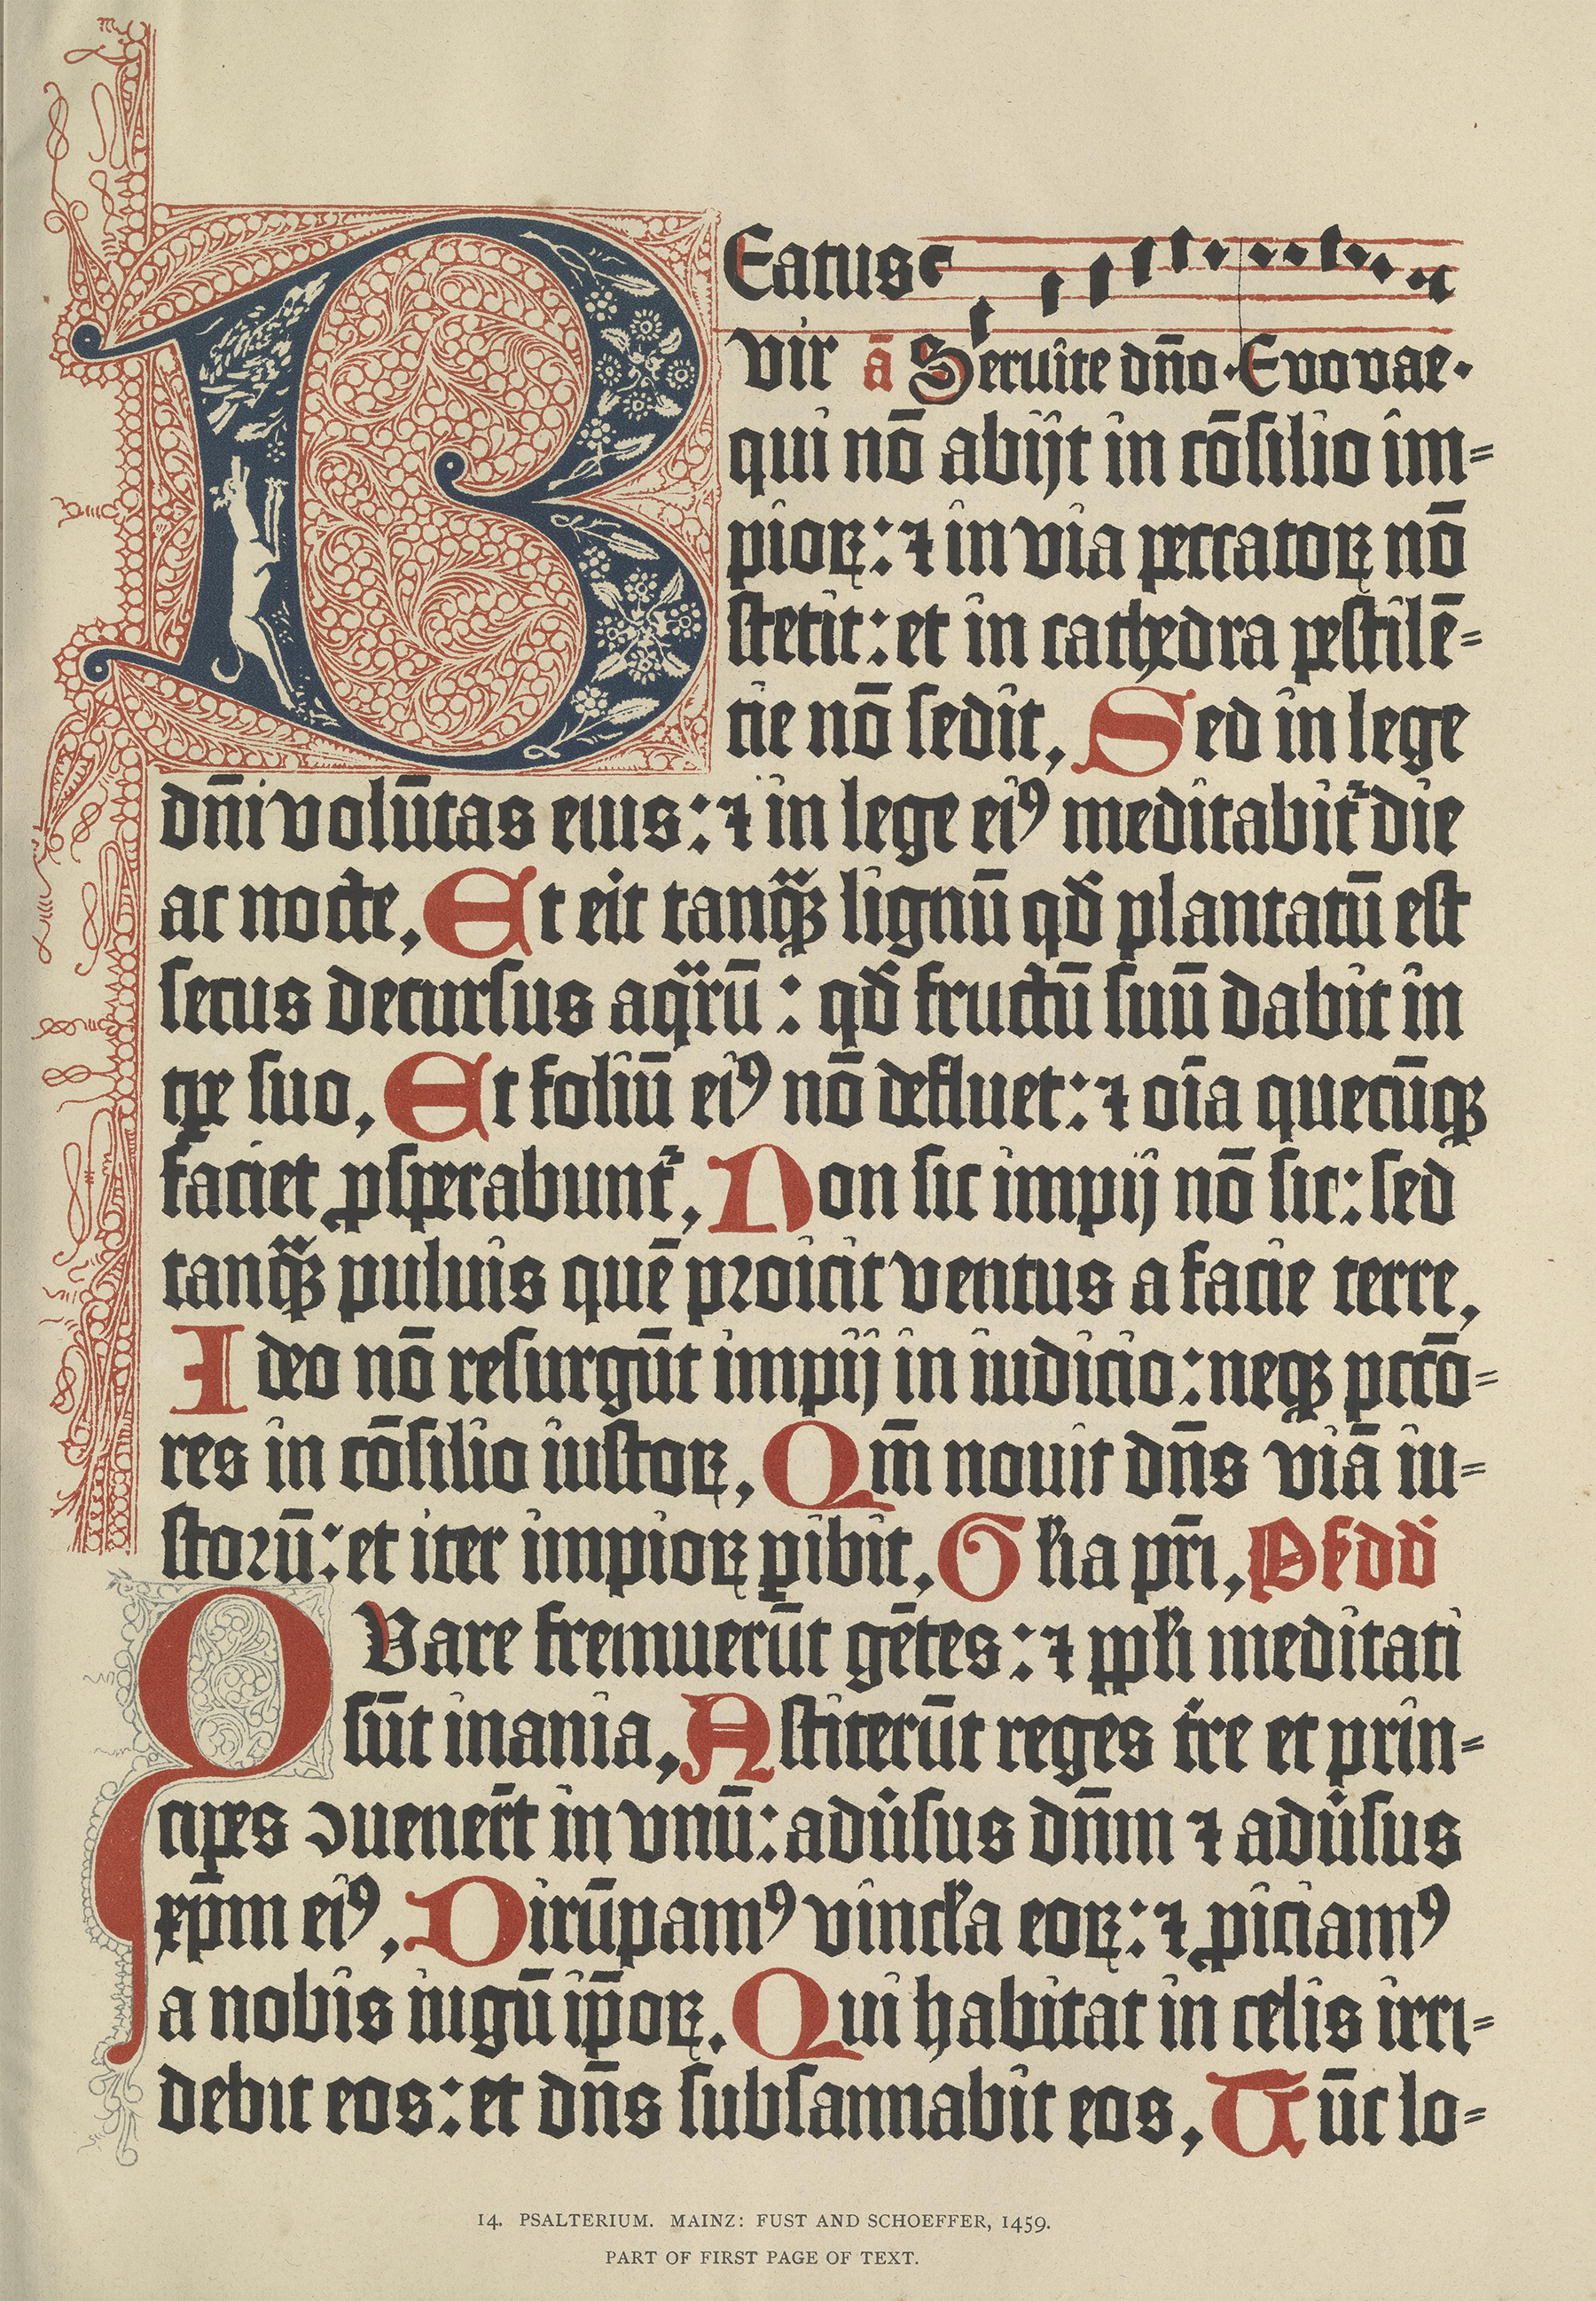 BEatus
vir ā Seruite dn̄o. Euouae.
qui nō abijt in cōsilio im=
pioꝝ: ⁊ in via peccatoꝝ nō
stetit: et in cathedra pestilē=
tie nō sedit, Sed in lege
dn̄i volūtas eius: ⁊ in lege eiꝰ meditabit᷑ die
ac nocte, Et eit tanqᷓꝫ lignū qđ plantatū est
secus decursus aqᷓrū: qđ fructū suū dabit in
tꝑe suo, Et foliū eiꝰ nō defluet: ⁊ oīa quecūqꝫ
faciet ꝓsperabunt᷑, Non sic impij nō sic: sed
tanqᷓꝫ puluis quē proicit ventus a facie terre,
Ideo nō resurgūt impij in iudicio: neqꝫ pctō=
res in cōsilio iustoꝝ, Qm̄ nouit dn̄s viā iu=
storū: et iter impioꝝ ꝑibit, Gł'ia pr̄i, Ps dd̄
QVare fremuerūt gētes: ⁊ ppł'i meditati
sūt inania, Astiterūt reges t're et prin=
cipes ↄuenert̄ in vnū: adūsus dn̄m ⁊ adūsus
xp̄m eiꝰ, Dirūpamꝰ vincł'a eoꝝ: ⁊ ꝓiciamꝰ
a nobis iugū ip̄oꝝ. Qui habitat in celis irri=
debit eos: et dn̄s subsannabit eos, Tūc lo=
14. PSALTERIUM. MAINZ: FUST AND SCHOEFFER, 1459.
PART OF FIRST PAGE OF TEXT.